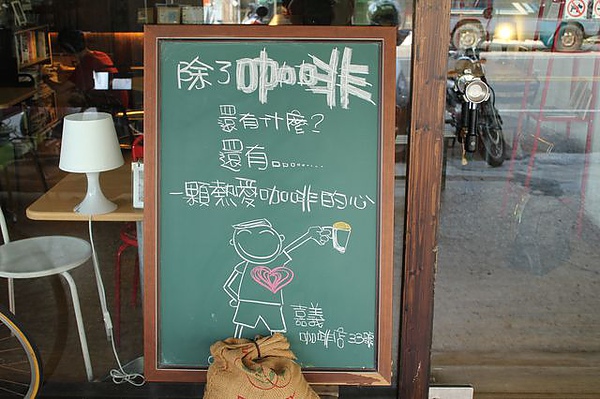 除了咖啡
還有什麼?
還有..........
一顆熱愛咖啡的心
嘉義
咖啡店33號